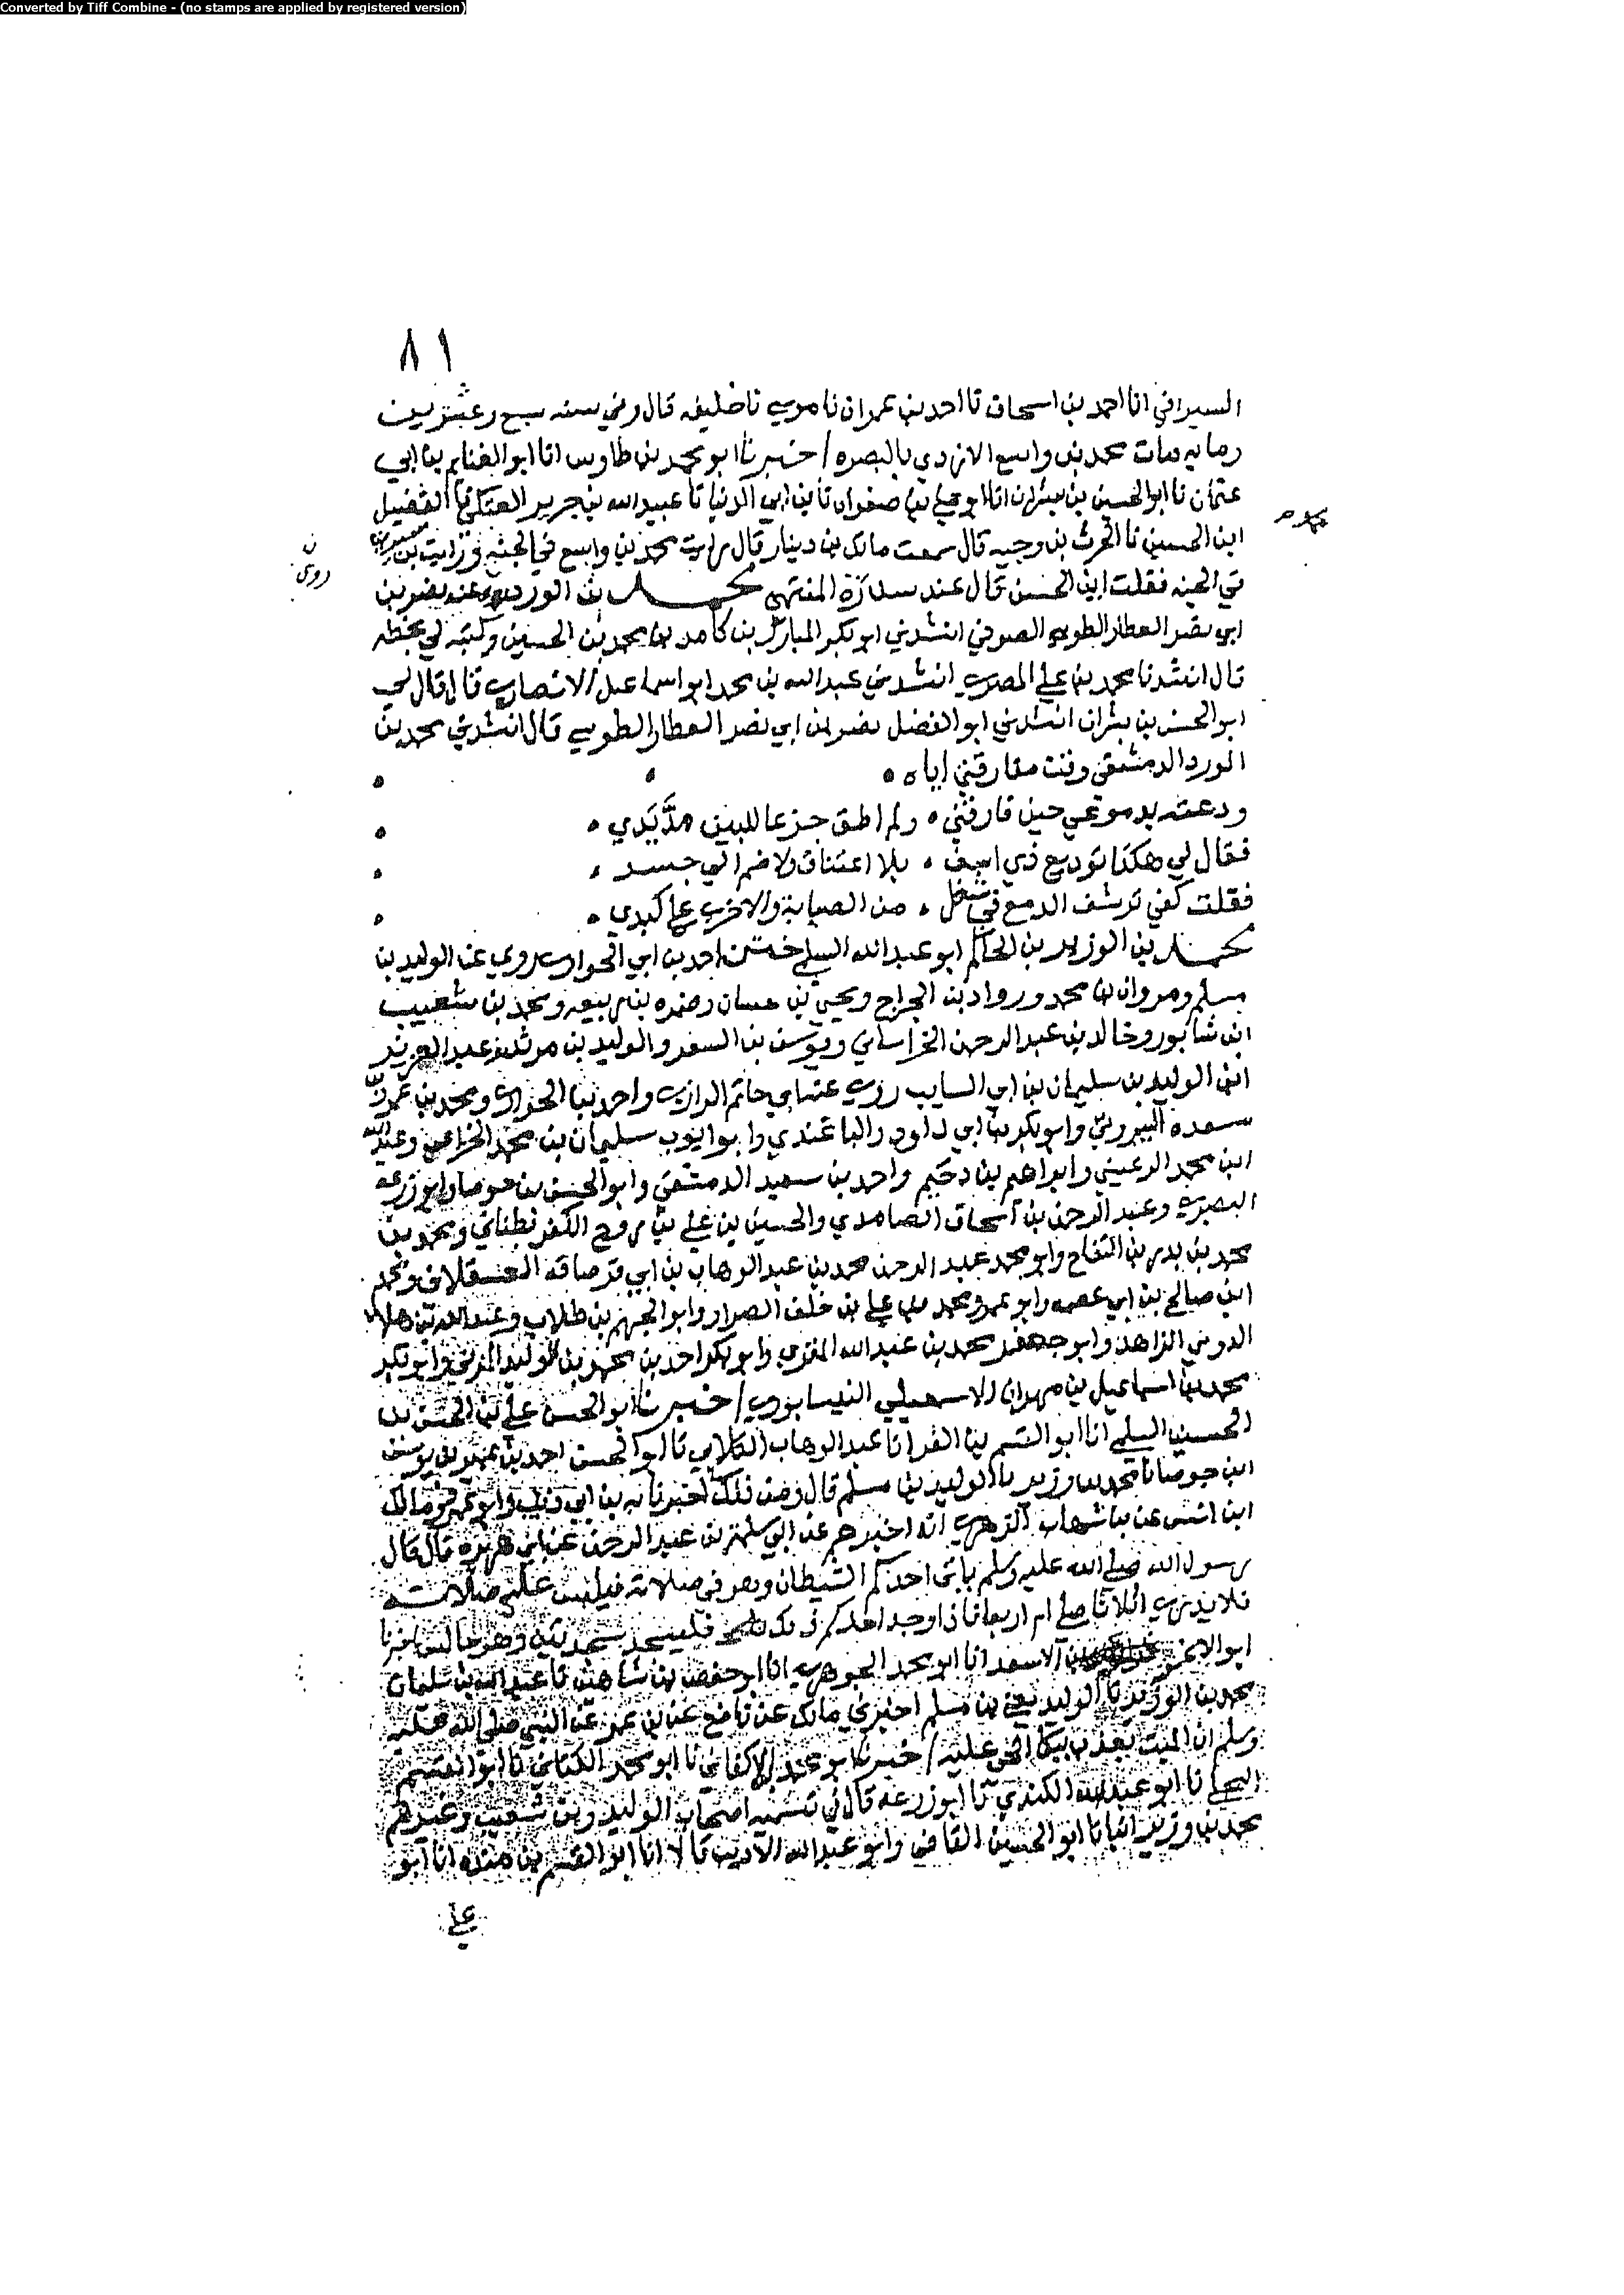 Converted by Tiff Combine - (no stamps are applied by registered version)
٨١
السيرافي انا احمد بن اسحاق نا احمد بن عمران نا موسى نا خليفه قال وفي سنه سبع وعشرين
ومايه مات محمد بن واسع الازدي بالبصره / اخبرنا ابو محمد بن طاوس انا ابو الغنايم بن ابي
عثمان نا ابو الحسين بن بشران انا ابو علي بن صفوان نا بن ابي الدنيا نا عبيد الله بن جرير العتكي نا الفضيل
ابن الحسين نا الحرث بن وجيه قال سمعت مالك بن دينار قال رايت محمد بن واسع في الجنه ورايت بن سيرين
في الجنه فقلت اين الحسن قال عند سدرة المنتهى محمد بن الورد عنه نصر بن
روى
ابي نصر العطار الطوسي الصوفي انشدني ابو بكر المبارك بن كامل بن محمد بن الحسين وكتبه لي بخطه
قال انشدنا محمد بن علي المصري انشدني عبد الله بن محمد ابو اسماعيل الانصاري قال قال لي
ابو الحسن بن بشران انشدني ابو الفضل نصر بن ابي نصر العطار الطوسي قال انشدني محمد بن
الورد الدمشقي وقت مفارقتي اياه
ودعته بدموعي حين فارقني ولم اطق جزعا للبين مدَّ يَدي
فقال لي هكذا توديع ذي اسف بلا اعتناق ولا ضم الى جسد
فقلت كفي ترشف الدمع في شغل من الصبابة والاخرى على كبدي
محمد بن الوزير بن الحاكم ابو عبد الله السلمي ختن احمد بن ابي الحواري روى عن الوليد بن
مسلم ومروان بن محمد ورواد بن الجراح ويحيى بن حسان وضمره بن ربيعه ومحمد بن شعيب
ابن شابور وخالد بن عبد الرحمن الخراساني ويوسف بن السفر والوليد بن مرثد وعبد العزيز
ابن الوليد بن سليمان بن ابي السايب روى عنه ابي حاتم الرازي واحمد بن الحواري ومحمد بن
سعده البيروتي وابو بكر بن ابي داود والباغندي وابو ايوب سليمان بن محمد الخزاعي وعبد الله
ابن محمد الرعيني وابراهيم بن دحيم واحمد بن سعيد الدمشقي وابو الحسن بن جوصا وابو زرعه
البصري وعبد الرحمن بن اسحاق الضامدي والحسين بن علي بن روح الكفر بطناني ومحمد بن
محمد بن بدر بن النفاح وابو محمد عبد الرحمن محمد بن عبد الوهاب بن ابي قرصافه العسقلاني ومحمد
ابن صالح بن ابي عصمه وابو عمرو محمد بن علي بن خلف الصرار وابو الجهم بن طلاب وعبد الله بن هلال
الدومي الزاهد وابو جعفر محمد بن عبد الله المقري وابو بكر احمد بن محمد بن الوليد المري وابو بكر
محمد بن اسماعيل بن مهران الاسمعيلي النيسابوري / اخبرنا ابو الحسن علي بن الحسن بن
الحسين السلمي انا ابو القسم بن الفرا نا عبد الوهاب الكلابي نا ابو الحسن احمد بن عمير بن يوسف
ابن جوصا نا محمد بن وزير نا الوليد بن مسلم قال ومن ذلك اخبرنا به بن ابي ذيب وابو عمرو ومالك
ابن انس عن بن شهاب الزهري انه اخبرهم عن ابي سلمة بن عبد الرحمن عن ابي هريره قال قال
رسول الله صلى الله عليه وسلم ياتي احدكم الشيطان وهو في صلاته فيلبس عليه صلاته
فلا يدري اثلاثا صلى ام اربعا فاذا وجد احدكم ذلك فليسجد سجدتين وهو جالس اخبرنا
ابو الاعز بن الاسعد انا ابو محمد الجوهري انا ابو حفص بن شاهين نا عبد الله بن سليمان
محمد بن الوزير نا الوليد يعني بن مسلم اخبرني مالك عن نافع عن بن عمر عن النبي صلى الله عليه
وسلم ان الميت يعذب ببكا الحي عليه / اخبرنا ابو محمد الاكفاني نا ابو محمد الكتاني نا ابو القسم
البجلي نا ابو عبد الله الكندي نا ابو زرعه قال في تسميه اصحاب الوليد وبن شعيب وغيرهم
محمد بن وزير انبانا ابو الحسين القاضي وابو عبد الله الاديب قالا انا ابو القسم بن منده انا ابو
علي